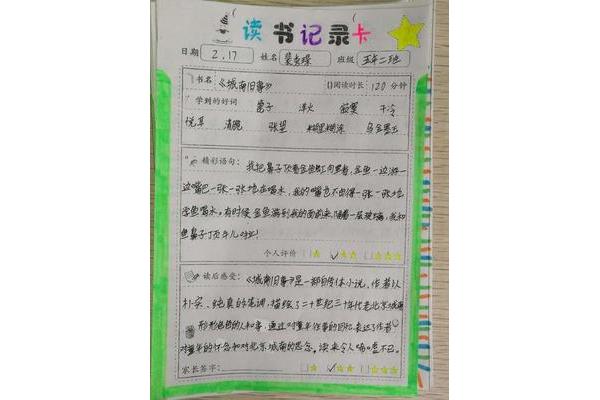 读书记录卡
日期 2.17 姓名 班级 五年二班
书名 《城南旧事》 阅读时长: 120 分钟
学到的好词 篦子 洋火 寂寞 干冷
悦耳 清脆 张望
精彩语句: 我把鼻子顶着金鱼缸向里看,金鱼一边游一
边嘴巴一张一张地在喝水,我的嘴也不由得一张一张地
学鱼喝水。有时候金鱼游到我的面前来,隔着一层玻璃,我和
鱼鼻子顶牛儿啦!
个人评价
读后感受: 《城南旧事》是一部自传体小说,作者以
朴实、纯真的笔调,描绘了二十世纪二三十年代老北京城南
形形色色的人和事,通过对童年往事的回忆,表达了作者
对童年的怀念和对北京城南的思念。读来令人
家长签字: